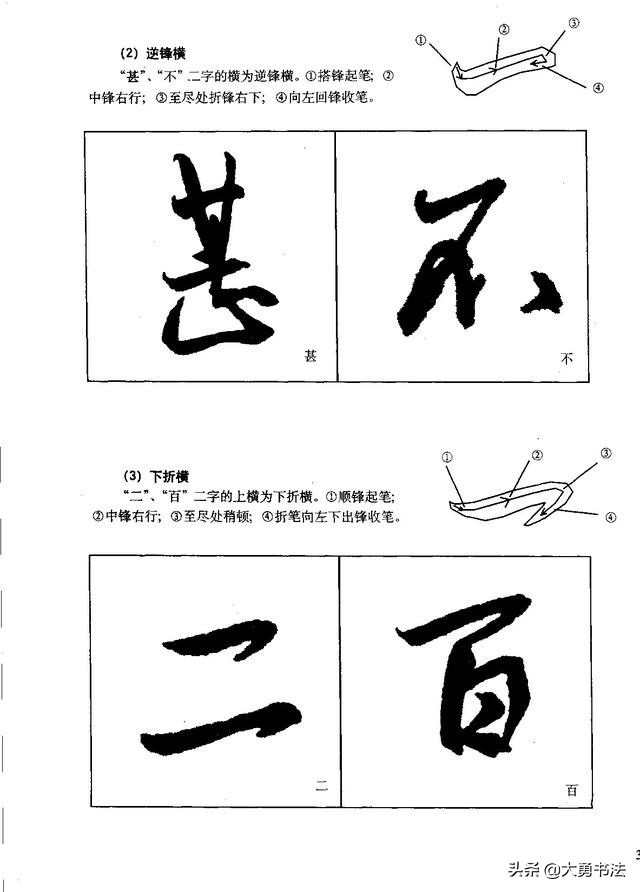 (2) 逆锋横
“甚”、“不”二字的横为逆锋横。①搭锋起笔；②
中锋右行；③至尽处折锋右下；④向左回锋收笔。
① ② ③ ④
甚 不
甚 不
(3) 下折横
“二”、“百”二字的上横为下折横。①顺锋起笔；
②中锋右行；③至尽处稍顿；④折笔向左下出锋收笔。
① ② ③ ④
二 百
二 百
头条@大勇书法